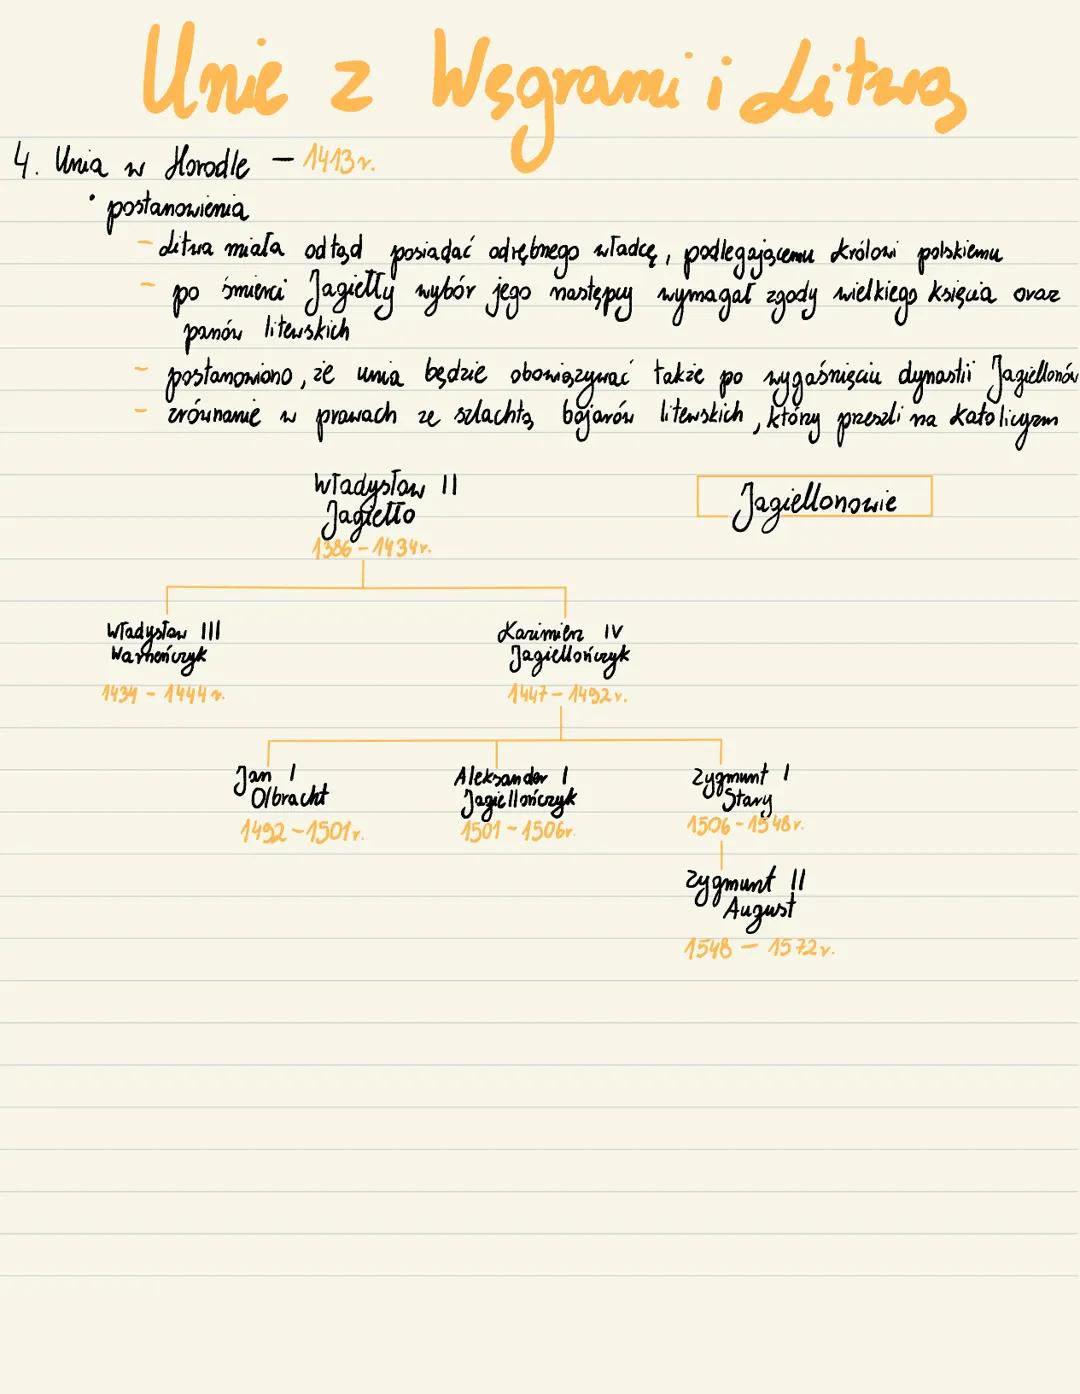 Unie z Węgrami i Litwą
4. Unia w Horodle – 1413r.
• postanowienia
- Litwa miała odtąd posiadać odrębnego władcę, podlegającemu królowi polskiemu
- po śmierci Jagiełły wybór jego następcy wymagał zgody wielkiego księcia oraz
panów litewskich
- postanowiono, że unia będzie obowiązywać także po wygaśnięciu dynastii Jagiellonów
- zrównanie w prawach ze szlachtą bojarów litewskich, który przeszli na katolicyzm
Władysław II
Jagiełło
1386 – 1434r.
Jagiellonowie
Władysław III
Warneńczyk
1434 – 1444r.
Kazimierz IV
Jagiellończyk
1447 – 1492r.
Jan I
Olbracht
1492 – 1501r.
Aleksander I
Jagiellończyk
1501 – 1506r.
Zygmunt I
Stary
1506 – 1548r.
Zygmunt II
August
1548 – 1572r.